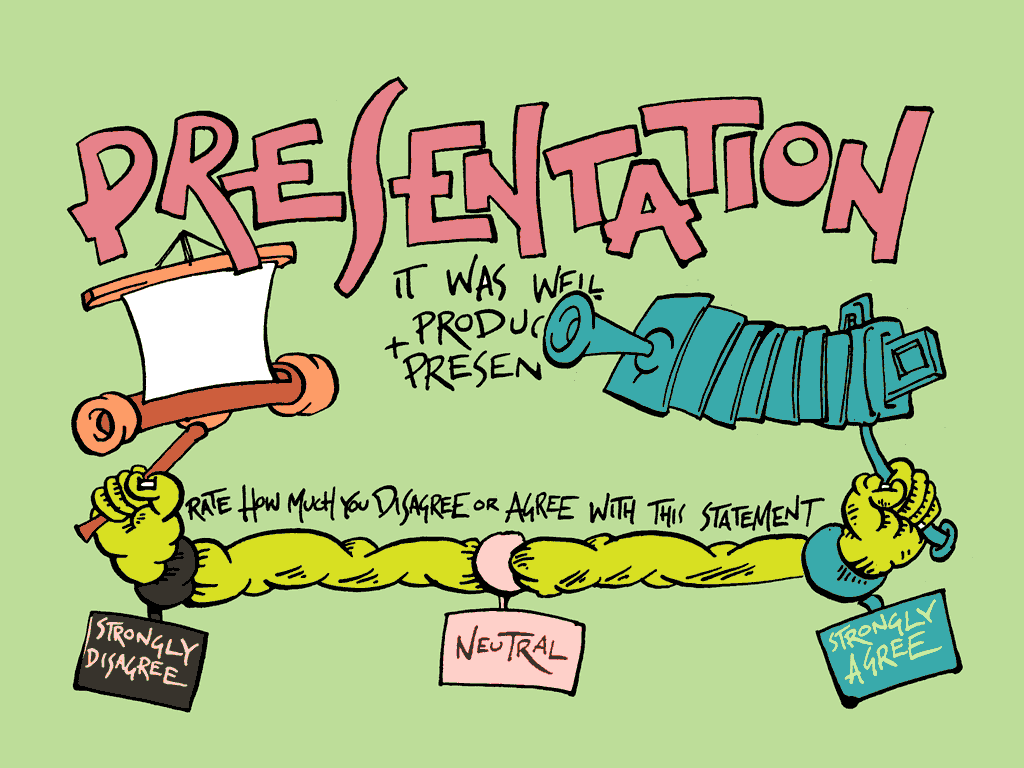 PRESENTATION
IT WAS WELL
PRODUC
+ PRESEN
RATE HOW MUCH YOU DISAGREE OR AGREE WITH THIS STATEMENT
STRONGLY
DISAGREE
NEUTRAL
STRONGLY
AGREE